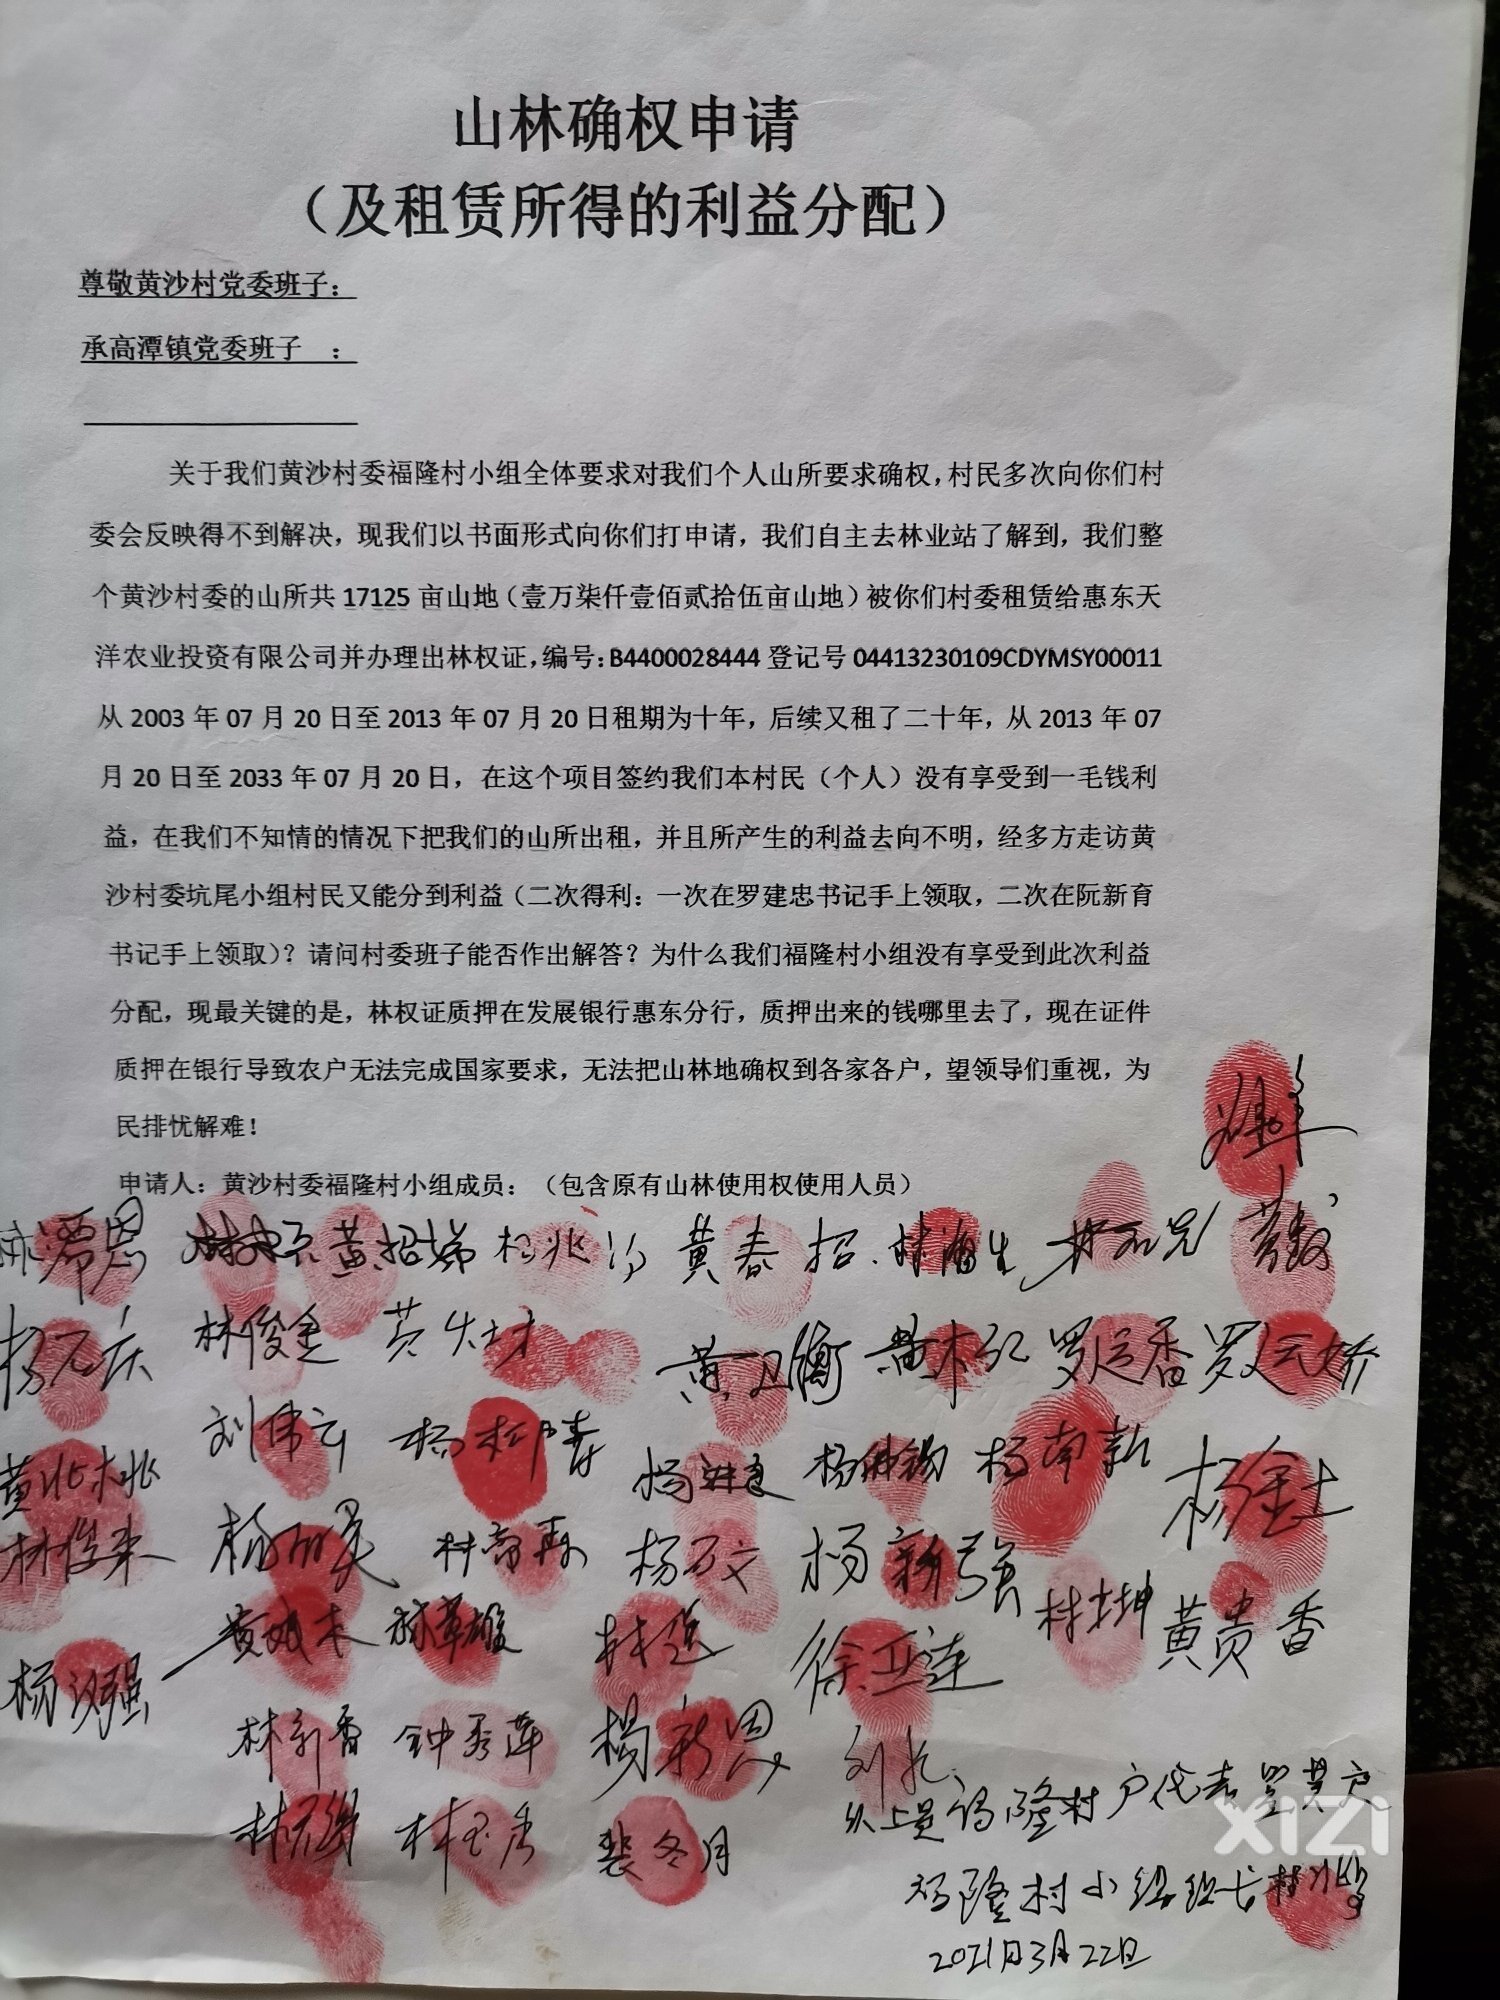 山林确权申请
（及租赁所得的利益分配）
尊敬黄沙村党委班子：
承高潭镇党委班子 ：
关于我们黄沙村委福隆村小组全体要求对我们个人山所要求确权，村民多次向你们村
委会反映得不到解决，现我们以书面形式向你们打申请，我们自主去林业站了解到，我们整
个黄沙村委的山所共 17125 亩山地（壹万柒仟壹佰贰拾伍亩山地）被你们村委租赁给惠东天
洋农业投资有限公司并办理出林权证，编号：B4400028444 登记号 04413230109CDYMSY00011
从 2003 年 07 月 20 日至 2013 年 07 月 20 日租期为十年，后续又租了二十年，从 2013 年 07
月 20 日至 2033 年 07 月 20 日，在这个项目签约我们本村民（个人）没有享受到一毛钱利
益，在我们不知情的情况下把我们的山所出租，并且所产生的利益去向不明，经多方走访黄
沙村委坑尾小组村民又能分到利益（二次得利：一次在罗建忠书记手上领取，二次在阮新育
书记手上领取）？请问村委班子能否作出解答？为什么我们福隆村小组没有享受到此次利益
分配，现最关键的是，林权证质押在发展银行惠东分行，质押出来的钱哪里去了，现在证件
质押在银行导致农户无法完成国家要求，无法把山林地确权到各家各户，望领导们重视，为
民排忧解难！
申请人：黄沙村委福隆村小组成员：（包含原有山林使用权使用人员）
黄招娣 黄春招
林俊金 黄卫衡 罗运香 罗运娇
刘伟云 杨南新 杨金土
杨石文 杨新强
林送 徐亚连 林坤 黄贵香
杨汉强
林新香 钟秀莲 杨新恩
裴冬月
以上是福隆村户代表
福隆村小组组长
2021年3月22日
XIZI